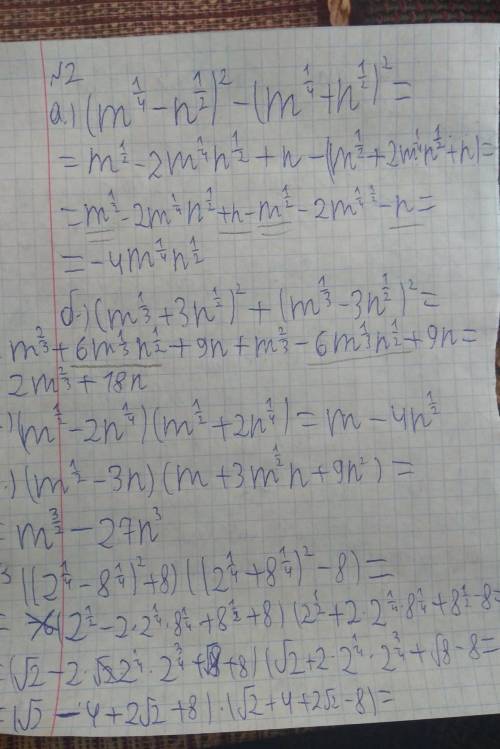 №2
а.) (m^{1/4} - n^{1/2})^2 - (m^{1/4} + n^{1/2})^2 =
= m^{1/2} - 2m^{1/4}n^{1/2} + n - (m^{1/2} + 2m^{1/4}n^{1/2} + n) =
= m^{1/2} - 2m^{1/4}n^{1/2} + n - m^{1/2} - 2m^{1/4 1/2} - n =
= -4m^{1/4}n^{1/2}
б.) (m^{1/3} + 3n^{1/2})^2 + (m^{1/3} - 3n^{1/2})^2 =
m^{2/3} + 6m^{1/3}n^{1/2} + 9n + m^{2/3} - 6m^{1/3}n^{1/2} + 9n =
2m^{2/3} + 18n
.) (m^{1/2} - 2n^{1/4}) (m^{1/2} + 2n^{1/4}) = m - 4n^{1/2}
.) (m^{1/2} - 3n) (m + 3m^{1/2}n + 9n^2) =
= m^{3/2} - 27n^3
3 ((2^{1/4} - 8^{1/4})^2 + 8) ((2^{1/4} + 8^{1/4})^2 - 8) =
= (2^{1/2} - 2·2^{1/4}·8^{1/4} + 8^{1/2} + 8) (2^{1/2} + 2·2^{1/4}·8^{1/4} + 8^{1/2} - 8 =
= (√2 - 2·2^{1/4}·2^{3/4} + √8 + 8) (√2 + 2·2^{1/4}·2^{3/4} + √8 - 8 =
= (√2 - 4 + 2√2 + 8)·(√2 + 4 + 2√2 - 8) =